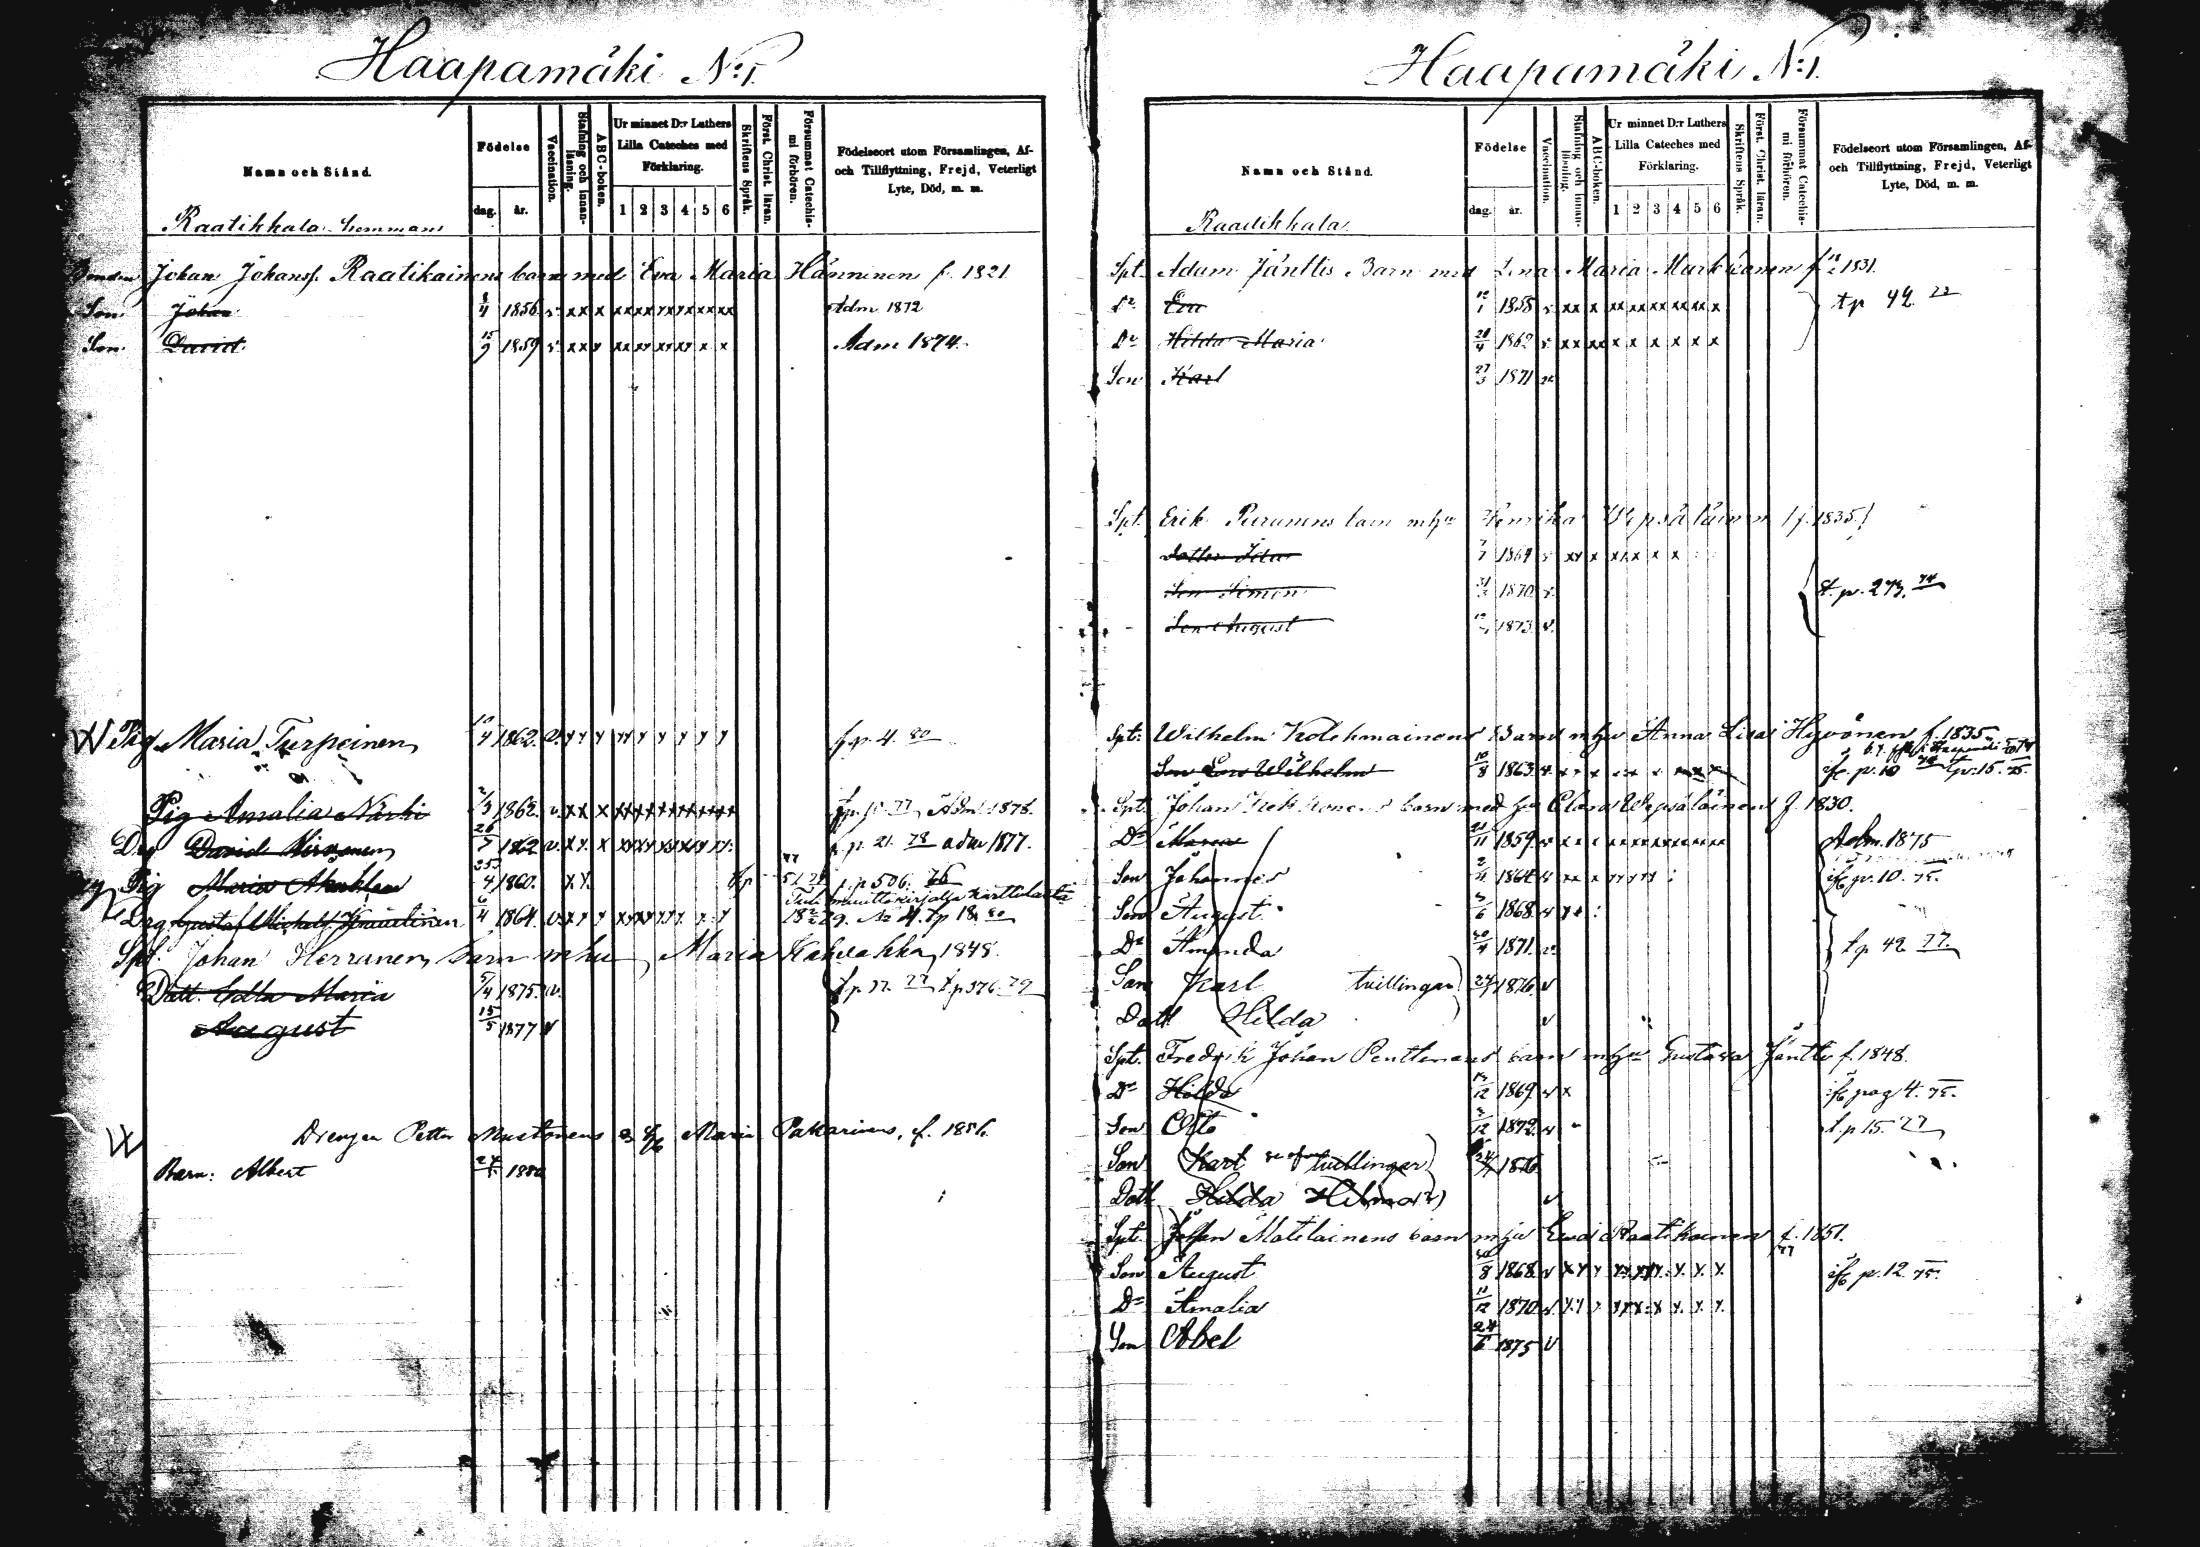 Haapamäki N:1.
Namn och Stånd.
Födelse
dag. år.
Vaccination.
Stafning och Innan-läsning.
ABC-boken.
Ur minnet D:r Luthers Lilla Cateches med Förklaring.
1 2 3 4 5 6
Skriftens Språk.
Först. Christ. läran.
Försummat Catechis-mi förhören.
Födelseort utom Församlingen, Af- och Tillflyttning, Frejd, Veterligt Lyte, Död, m. m.
Raatikkala hemman
Bonden Johan Johanss. Raatikainens barn med Eva Maria Hänninen f. 1821
Son Johan 8/4 1856 v x x x xx xx xx xx xx xx Adm 1872
Son David 15/9 1859 v x x x xx xx xx xx x x Adm 1874.
Pig Maria Turpeinen 10/4 1862 v. x x x xx x x x x x fr p. 4. 80
Pig Amalia Närhi 2/3 1862. v. x x x Adm. 1878.
Drg David Hirvonen 26/7 1862 v. x x p. 21. 78 adm 1877.
Pig Maria 25/4 1860. x x p. 506. 76
Tuli muuttokirjalla Karttulasta
Drg Gustaf Michels. 6/4 1864 v. x x x N:o 4. tp 18 80
Spt. Johan Herranens barn mhu Maria Kahvakka 1848.
Dott. Edla Maria 5/4 1875. v. t p. 77. 77 t p 376. 79
August 15/5 1877 v
Drengen Petter Mustonens o. h. Maria Pakarinens, f. 1856.
Barn: Albert 1880
Haapamäki N:1.
Namn och Stånd.
Födelse
dag. år.
Vaccination.
Stafning och Innan-läsning.
ABC-boken.
Ur minnet D:r Luthers Lilla Cateches med Förklaring.
1 2 3 4 5 6
Skriftens Språk.
Först. Christ. läran.
Försummat Catechis-mi förhören.
Födelseort utom Församlingen, Af- och Tillflyttning, Frejd, Veterligt Lyte, Död, m. m.
Raatikkala
Spt. Adam Jänttis Barn med Lena Maria Markkanen f. 1831.
Dr Eva 1858 v xx x xx xx xx xx x x tp 42. 77
Dr Hilda Maria 28/4 1862 v xx xx x x x x x x
Son Karl 27/3 1871 v
Spt. Erik Puranens barn mhu Henrika Vepsäläinen / f. 1835./
Dotter Ida 1864 v xx x
Son Simon 1870 v t. p. 273. 74
Son August 1873 v.
Spt. Wilhelm Kolehmainens Barn mhu Anna Lisa Hyvönen f. 1835
Son Lars Wilhelm 10/8 1863 v. p. 10 tp. 15. 75.
Spt. Johan Kekkonens barn med hu Clara Wepsäläinen f. 1830.
Dr Maria 21/11 1859 v x x x Adm. 1875
Son Johannes 1864 v x x x p. 10. 75.
Son August 1868 v x x
Dr Amanda 1871 v. t p 42 77.
Son Karl tvillingar 1876. v
Dott Hilda v
Spt. Fredrik Johan Penttinens barn mhu Gustava Jäntti f. 1848.
Dr Hilda 1869. v x pag 4. 75.
Son Otto 1872. v t. p 15. 77
Son Karl tvillingar 1876
Dott Hilda v
Spt. Johan Matilainens barn mhu Eva Raatikainen f. 1851.
Son August 1868 v x x x p. 12. 75.
Dr Amalia 11/12 1870 v x x x
Son Abel 24/6 1875 v